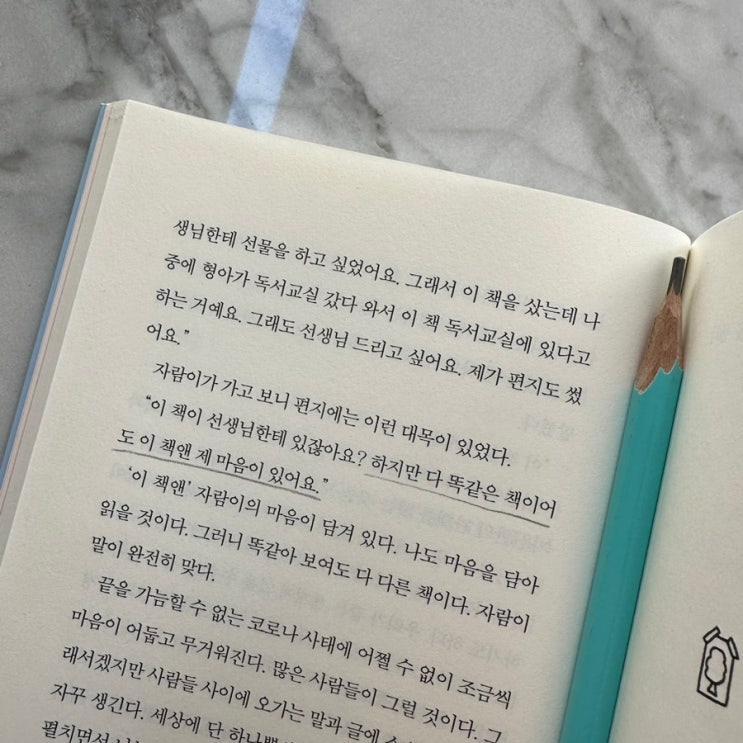 생님한테 선물을 하고 싶었어요. 그래서 이 책을 샀는데 나
중에 형아가 독서교실 갔다 와서 이 책 독서교실에 있다고
하는 거예요. 그래도 선생님 드리고 싶어요. 제가 편지도 썼
어요.”
자람이가 가고 보니 편지에는 이런 대목이 있었다.
“이 책이 선생님한테 있잖아요? 하지만 다 똑같은 책이어
도 이 책앤 제 마음이 있어요.”
‘이 책앤’ 자람이의 마음이 담겨 있다. 나도 마음을 담아
읽을 것이다. 그러니 똑같아 보여도 다 다른 책이다. 자람이
말이 완전히 맞다.
끝을 가늠할 수 없는 코로나 사태에 어쩔 수 없이 조금씩
마음이 어둡고 무거워진다. 많은 사람들이 그럴 것이다. 그
래서겠지만 사람들 사이에 오가는 말과 글에
자꾸 생긴다. 세상에 단
펼치면서